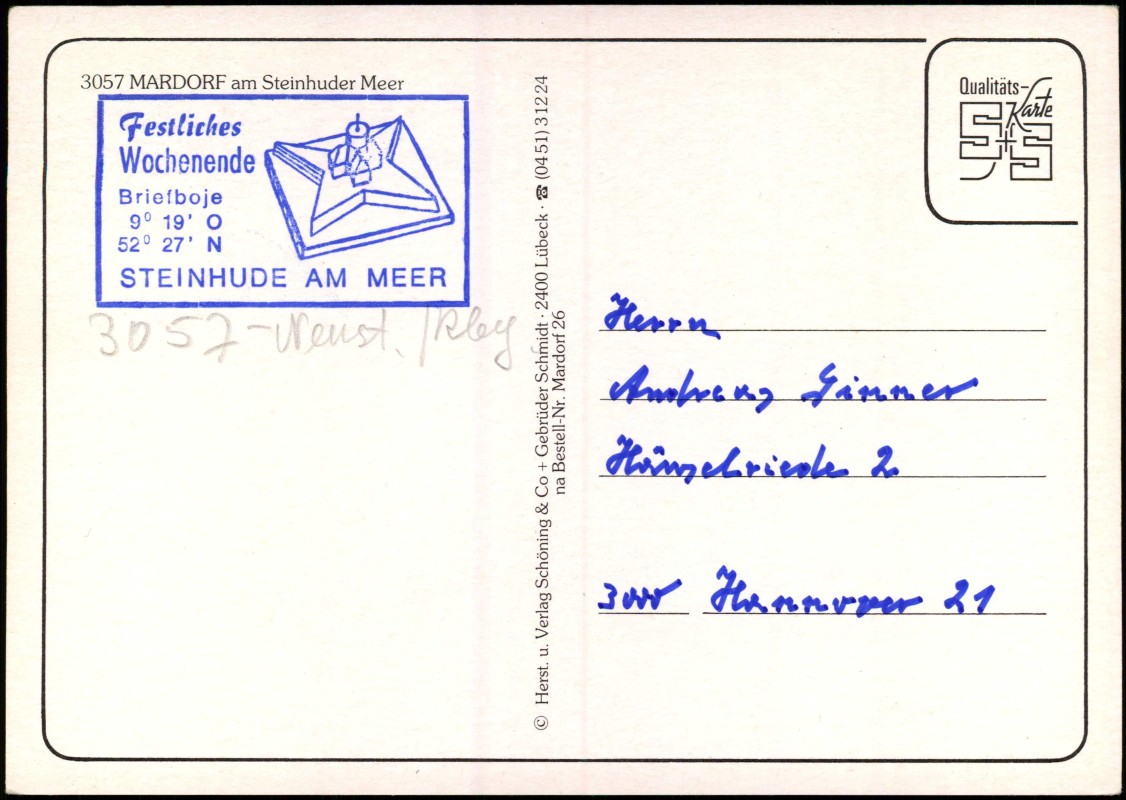 3057 MARDORF am Steinhuder Meer
Festliches
Wochenende
Briefboje
9⁰ 19' O
52⁰ 27' N
STEINHUDE AM MEER
3057-Neust. /Rbg
© Herst. u. Verlag Schöning & Co + Gebrüder Schmidt · 2400 Lübeck · ☎ (0451) 31224
na Bestell-Nr. Mardorf 26
Qualitäts-
Karte
S+S
Herrn
Andreas Ginner
Hänselriede 2
3000 Hannover 21